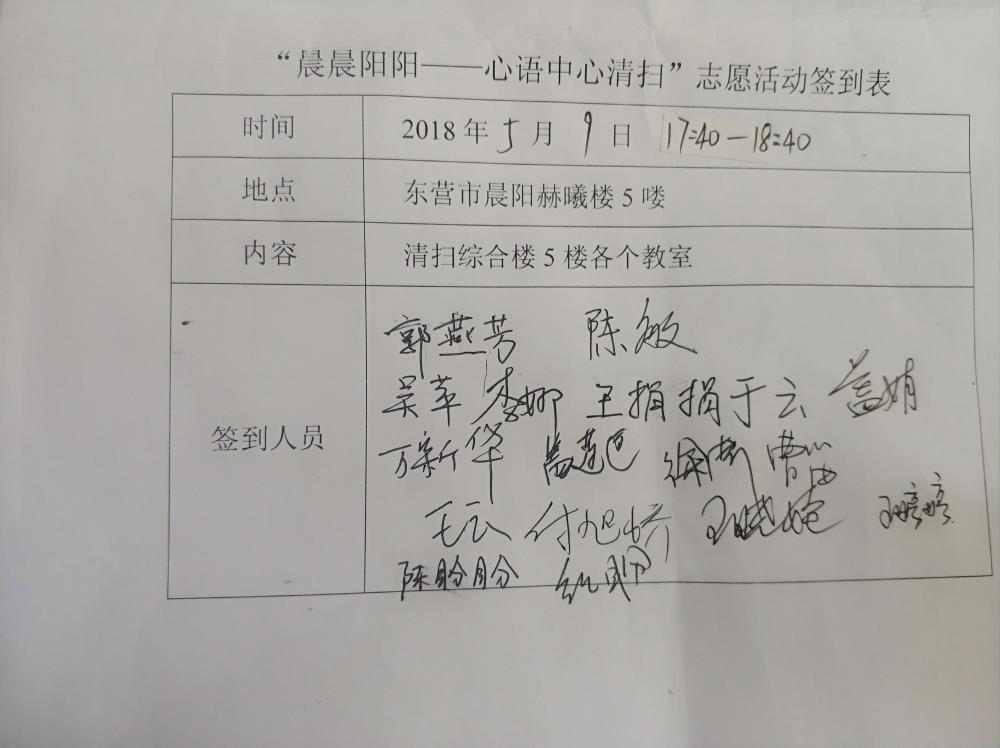 “晨晨阳阳——心语中心清扫”志愿活动签到表
时间 2018年5月9日 17:40—18:40
地点 东营市晨阳赫曦楼5喽
内容 清扫综合楼5楼各个教室
签到人员
郭燕芳 陈敏
吴苹 李娜 王捐捐 于云 盖娟
万新华 盖莲 曹
王云 付旭娇 王晓婉 王婷婷
陈盼盼